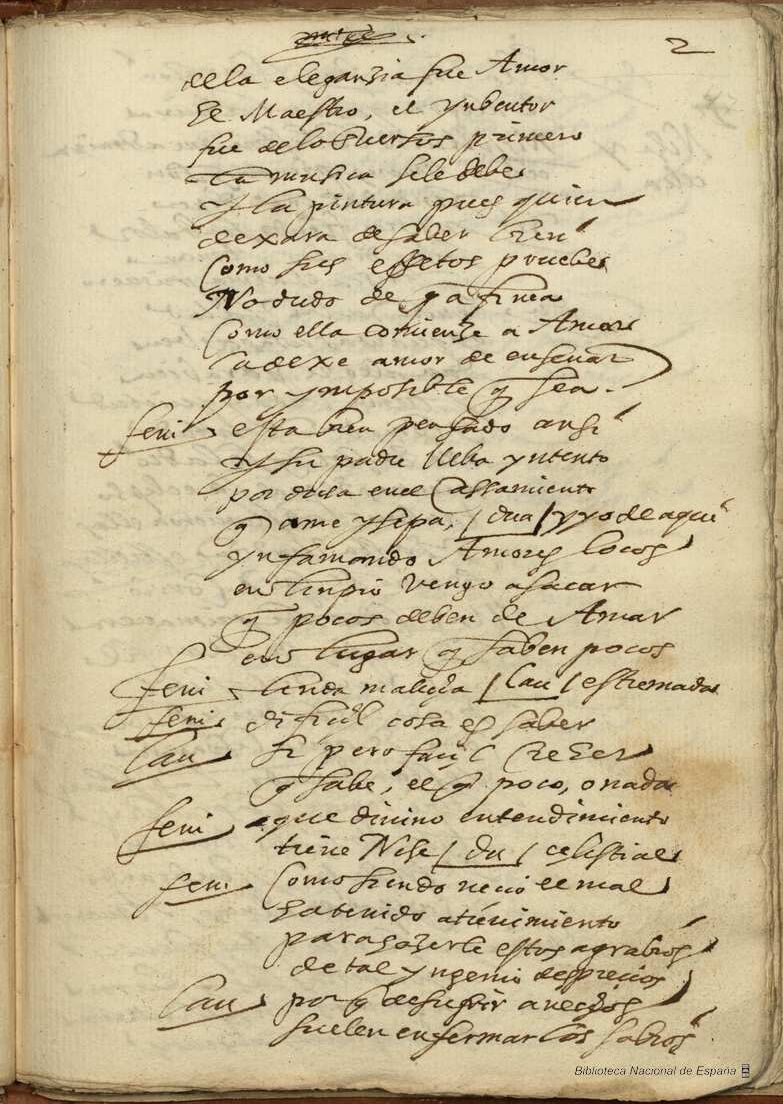 2
dela eleganzia fue Amor
El Maestro, el ynbentor
fue delos uersos primero
La musica sele debe
y la pintura pues quien
dexara de saber bien
como sus effetos pruebe
No dudo de q a finea
como ella comienze a Amar
la dexe amor de enseñar
por ymposible q sea.
feni esta bien pensado ansi
y su padre lleba yntento
por dicha en el cassamiento
q ame y sepa, / dua / y yo de aqui
ynfamando Amores locos
en limpio vengo a sacar
q pocos deben de Amar
en lugar q saben pocos
feni linda maliçia / Lau / estremada
feni dificil cosa es saber
Lau si pero façil creer
q sabe, el q poco, o nada
feni que divino entendimiento
tiene Nise / du / çelestial
feni como siendo neçio el mal
ha tenido atreuimiento
para hazerle estos agrabios
de tal yngenio despreçios
Lau por q de sufrir a neçios
suelen enfermar los sabios
Biblioteca Nacional de España